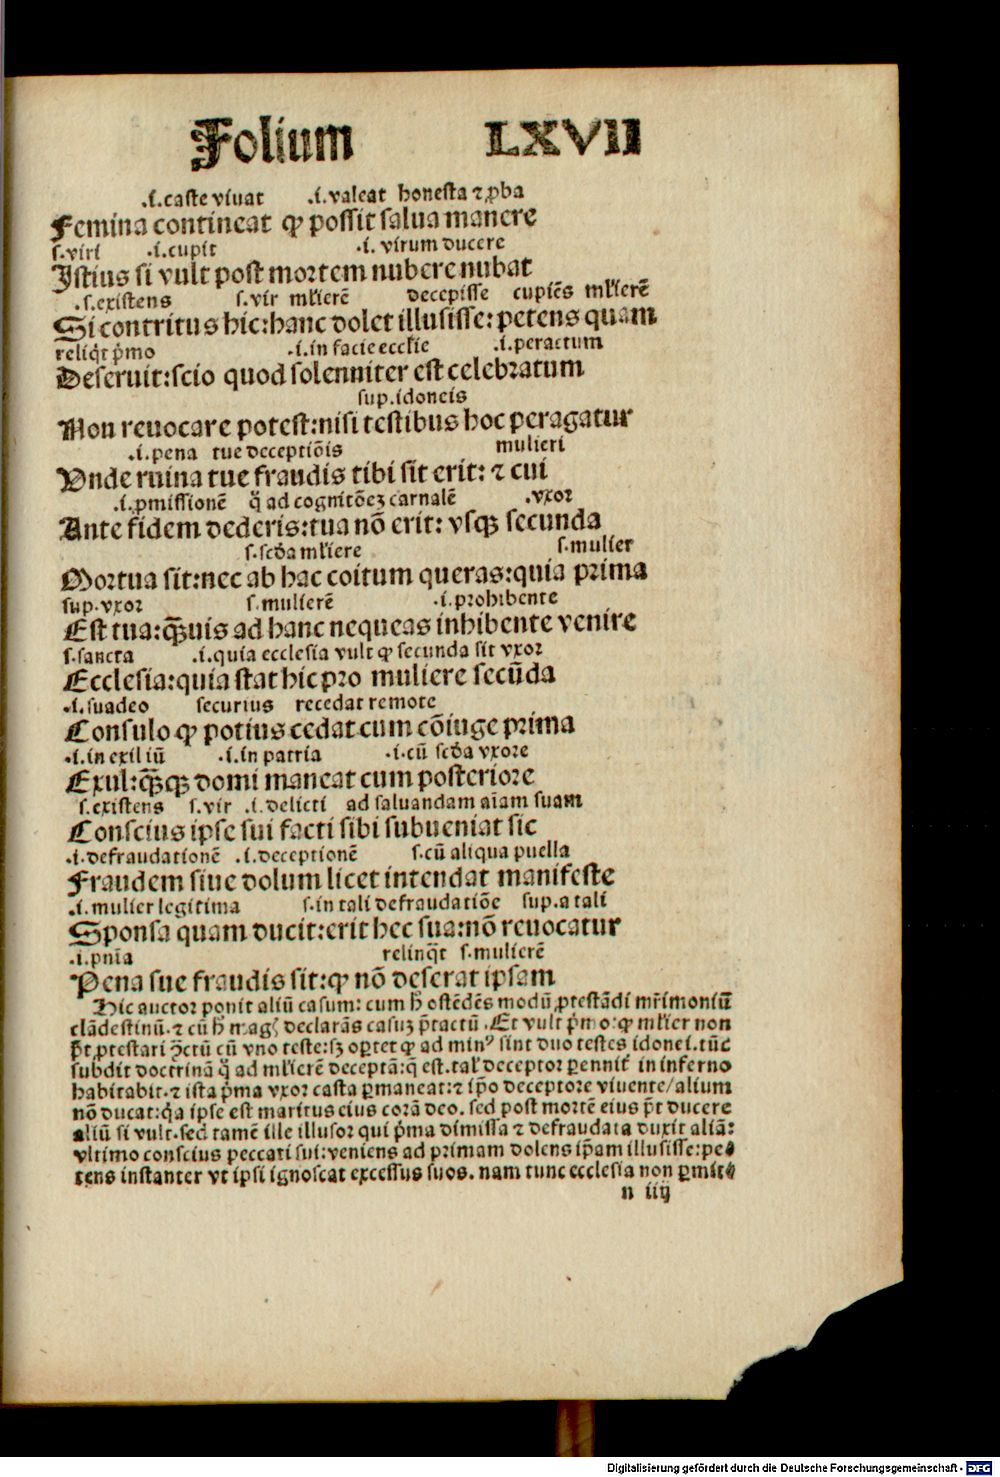 Folium LXVII
.i. caste viuat .i. valeat honesta ⁊ ꝓba
Femina contineat ꝙ possit salua manere
s. viri .i. cupit .i. virum ducere
Istius si vult post mortem nubere nubat
.s. existens s. vir młierē decepisse cupiēs młierē
Si contritus hic: hanc dolet illusisse: petens quam
reliq̇t p̄mo .i. in facie ecclie .i. peractum
Deseruit: scio quod solenniter est celebratum
sup. idoneis
Non reuocare potest: nisi testibus hoc peragatur
.i. pena tue deceptiōis mulieri
Vnde ruina tue fraudis tibi sit erit: ⁊ cui
.i. ꝓmissionē q̈ ad cognitōeꝫ carnalē .vxor
Ante fidem dederis: tua nō erit: vsqꝫ secunda
s. scd̄a młiere s. mulier
Mortua sit: nec ab hac coitum queras: quia prima
sup. vxor s. mulierē .i. prohibente
Est tua: q̄ꝫuis ad hanc nequeas inhibente venire
s. sancta .i. quia ecclesia vult ꝙ secunda sit vxor
Ecclesia: quia stat hic pro muliere secūda
.i. suadeo securius recedat remote
Consulo ꝙ potius cedat cum cōiuge prima
.i. in exiliū .i. in patria .i. cū scd̄a vxore
Exul: q̄ꝫqꝫ domi maneat cum posteriore
s. existens s. vir .i. delicti ad saluandam aīam suam
Conscius ipse sui facti sibi subueniat sic
.i. defraudationē .i. deceptionē s. cū aliqua puella
Fraudem siue dolum licet intendat manifeste
.i. mulier legitima s. in tali defraudatiōe sup. a tali
Sponsa quam ducit: erit hec sua: nō reuocatur
.i. pn̄ia relinq̄t s. mulierē
Pena sue fraudis sit: ꝙ nō deserat ipsam
Hic auctor ponit aliū casum: cum h̄ ostēdēs modū ꝓtestādi mr̄imoniū
clādestinū. ⁊ cū h̄ mag declarās casuꝫ p̄tactū. Et vult p̄mo: ꝙ młier non
pt̄ ꝓtestari ꝯctū cū vno teste: sꝫ oꝑtet ꝙ ad minꝰ sint duo testes idonei. tūc
subdit doctrinā q̈ ad młierē deceptā: q̄ est. talꝰ deceptor ꝑennit̄ in inferno
habitabit. ⁊ ista p̄ma vxor casta ꝑmaneat: ⁊ ip̄o deceptore viuente/ alium
nō ducat: q̇a ipse est maritus eius corā deo. sed post mortē eius pt̄ ducere
aliū si vult. sed tamē ille illusor qui p̄ma dimissa ⁊ defraudata duxit aliā:
vltimo conscius peccati sui: veniens ad primam dolens ip̄am illusisse: pe⸗
tens instanter vt ipsi ignoscat excessus suos. nam tunc ecclesia non ꝑmit⸗
n iiij
Digitalisierung gefördert durch die Deutsche Forschungsgemeinschaft - DFG